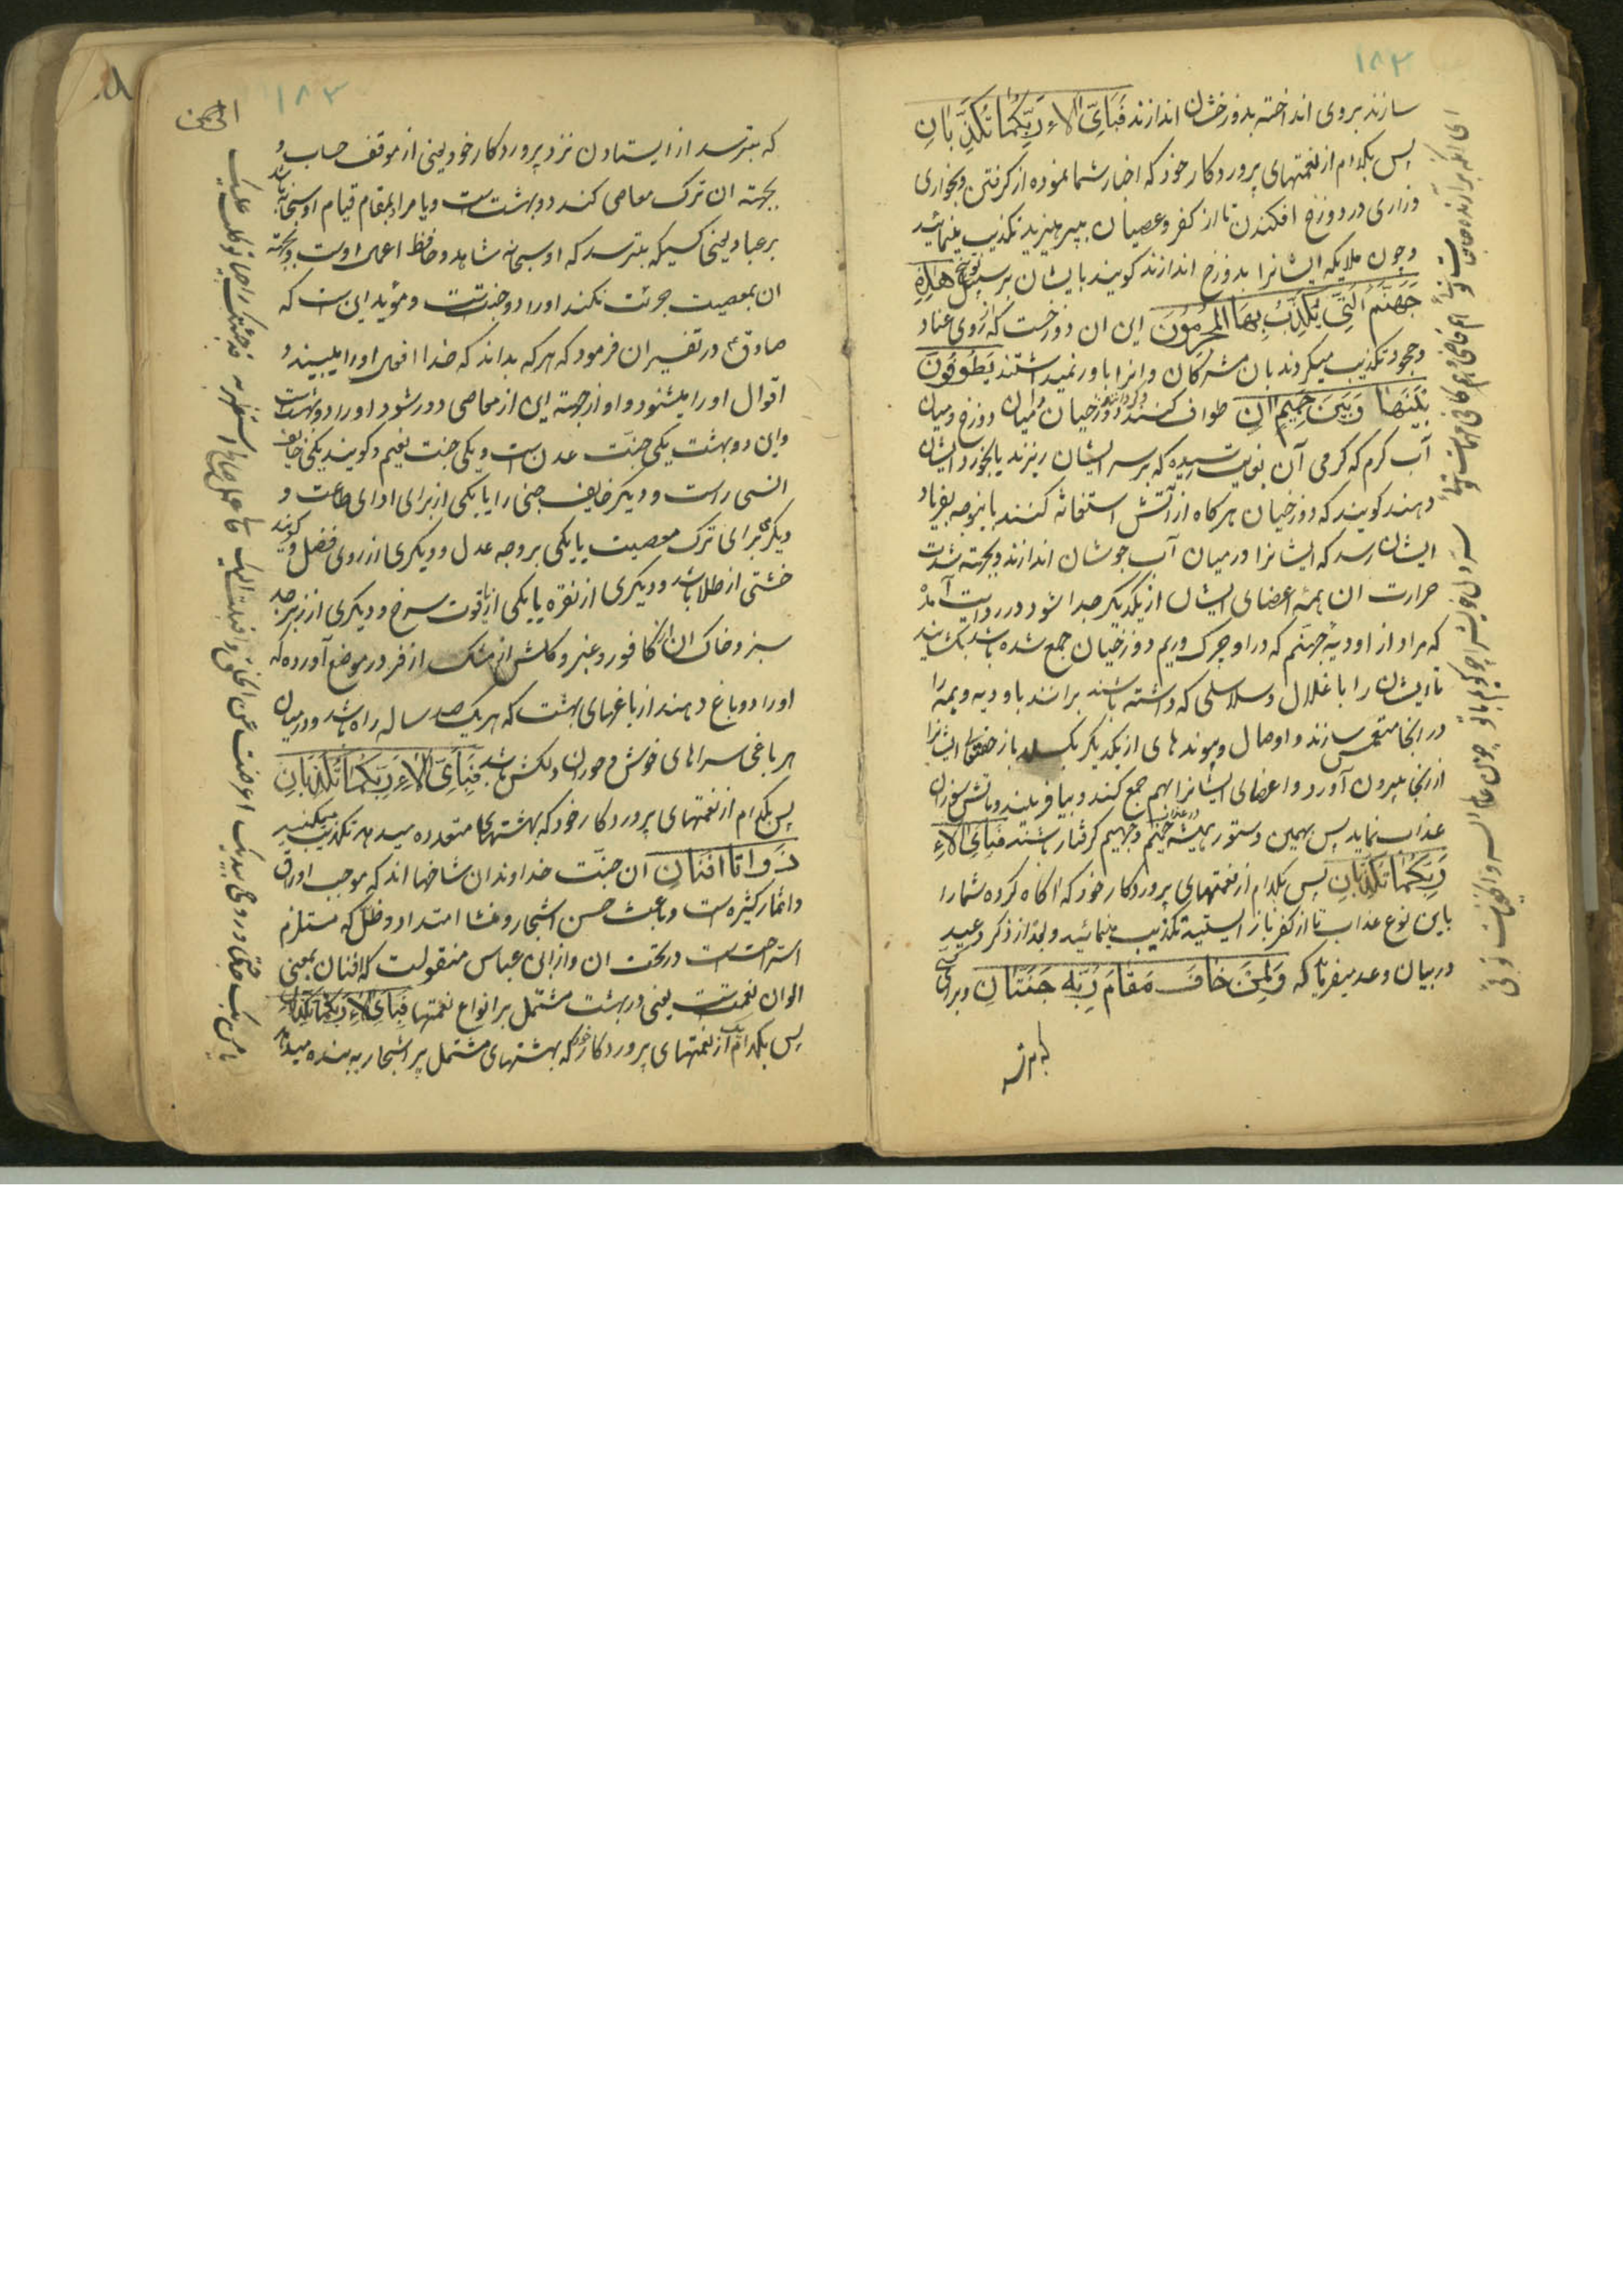 ١٨٢
سازند بروی انداخته بدوزخشان اندازند فَبِأَيِّ آلَاءِ رَبِّكُمَا تُكَذِّبَانِ
پس بکدام از نعمتهای پروردکار خود که اخبار شما نموده از کرفتن و بخواری
وزاری در دوزخ افکندن تا از کفر و عصیان بپرهیزید تکذیب مینمائید
وچون ملایکه ایشانرا بدوزخ اندازند کویند بایشان بر سبیل توبیخ هٰذِهِ
جَهَنَّمُ الَّتِي يُكَذِّبُ بِهَا الْمُجْرِمُونَ این ان دوزخست که از روی عناد
وجحود تکذیب میکردند بان مشرکان وانرا باور نمیداشتند يَطُوفُونَ
بَيْنَهَا وَبَيْنَ حَمِيمٍ آنٍ طواف کنند دوزخیان میان دوزخ ومیان
آب کرم که کرمی آن بنهایت رسیده که بر سر ایشان ریزند یا بخورد ایشان
دهند کویند که دوزخیان هرکاه از آتش استغاثه کنند باینوجه بفریاد
ایشان رسد که ایشانرا در میان آب جوشان اندازند وبجهته شدت
حرارت ان همه اعضای ایشان از یکدیکر جدا شود ودر روایت آمده
که مراد از اودیهٔ جهنم که در او چرک وریم دوزخیان جمع شده باشد
تا ایشان را با غلال وسلاسلی که داشته باشند برانند باودیه وهمه را
در انجا منغمس سازند و اوصال وپیوندهای از یکدیکر بکسلد باز حقتعالی ایشانرا
از انجا بیرون آورد و اعضای ایشانرا بهم جمع کند و بیافریند و باتش سوزان
عذاب نماید پس بهمین دستور همیشه در عذاب جهنم وحمیم کرفتار باشند فَبِأَيِّ آلَاءِ
رَبِّكُمَا تُكَذِّبَانِ پس بکدام از نعمتهای پروردکار خود که اکاه کرده شما را
باین نوع عذاب تا از کفر باز ایستید تکذیب مینمائید وبعد از ذکر وعید
در بیان وعد میفرماید که وَلِمَنْ خَافَ مَقَامَ رَبِّهِ جَنَّتَانِ وبرای کسی
که بترسد
١٨٣
که بترسد از ایستادن نزد پروردکار خود یعنی از موقف حساب و
بجهته ان ترک معاصی کند دو بهشتست ویا مراد بمقام قیام او سبحانه باشد
بر عباد یعنی کسیکه بترسد که او سبحانه شاهد وحافظ اعمال اوست وبجهته
ان بمعصیت جرئت نکند اورا دو جنتست ومؤید این است که
صادق ع در تفسیر ان فرمود که هرکه بداند که خدا افعال اورا میبیند و
اقوال اورا میشنود و او از جهته این از معاصی دور شود اورا دو بهشتست
واین دو بهشت یکی جنت عدن است ویکی جنت نعیم وکویند یکی خایف
انسی راست ودیکر خایف جنی را یا یکی از برای ادای طاعت و
دیکری برای ترک معصیت یا یکی بر وجه عدل ودیکری از روی فضل وکویند
خشتی از طلا باشد ودیکری از نقره یا یکی از یاقوت سرخ ودیکری از زبرجد
سبز وخاک ان از کافور وعنبر وکلش از مشک اذفر ودر موضع آورده که
اورا دو باغ دهند از باغهای بهشت که هر یک صد ساله راه باشد ودر میان
هر باغی سراهای خوش وحوران دلکش باشد فَبِأَيِّ آلَاءِ رَبِّكُمَا تُكَذِّبَانِ
پس بکدام از نعمتهای پروردکار خود که بهشتهای متعدده میدهد تکذیب میکنید
ذَوَاتَا أَفْنَانٍ ان جنت خداوندان شاخها اند که موجب اوراق
واثمار کثیره است وباعث حسن اشجار ومنشا امتداد وظل که مستلزم
استراحتست در تحت ان واز ابن عباس منقولست که افنان بمعنی
الوان نعمتست یعنی در بهشت مشتمل بر انواع نعمتها فَبِأَيِّ آلَاءِ رَبِّكُمَا تُكَذِّبَانِ
پس بکدام یک از نعمتهای پروردکار خود که بهشتهای مشتمل بر اشجار به بنده میدهد